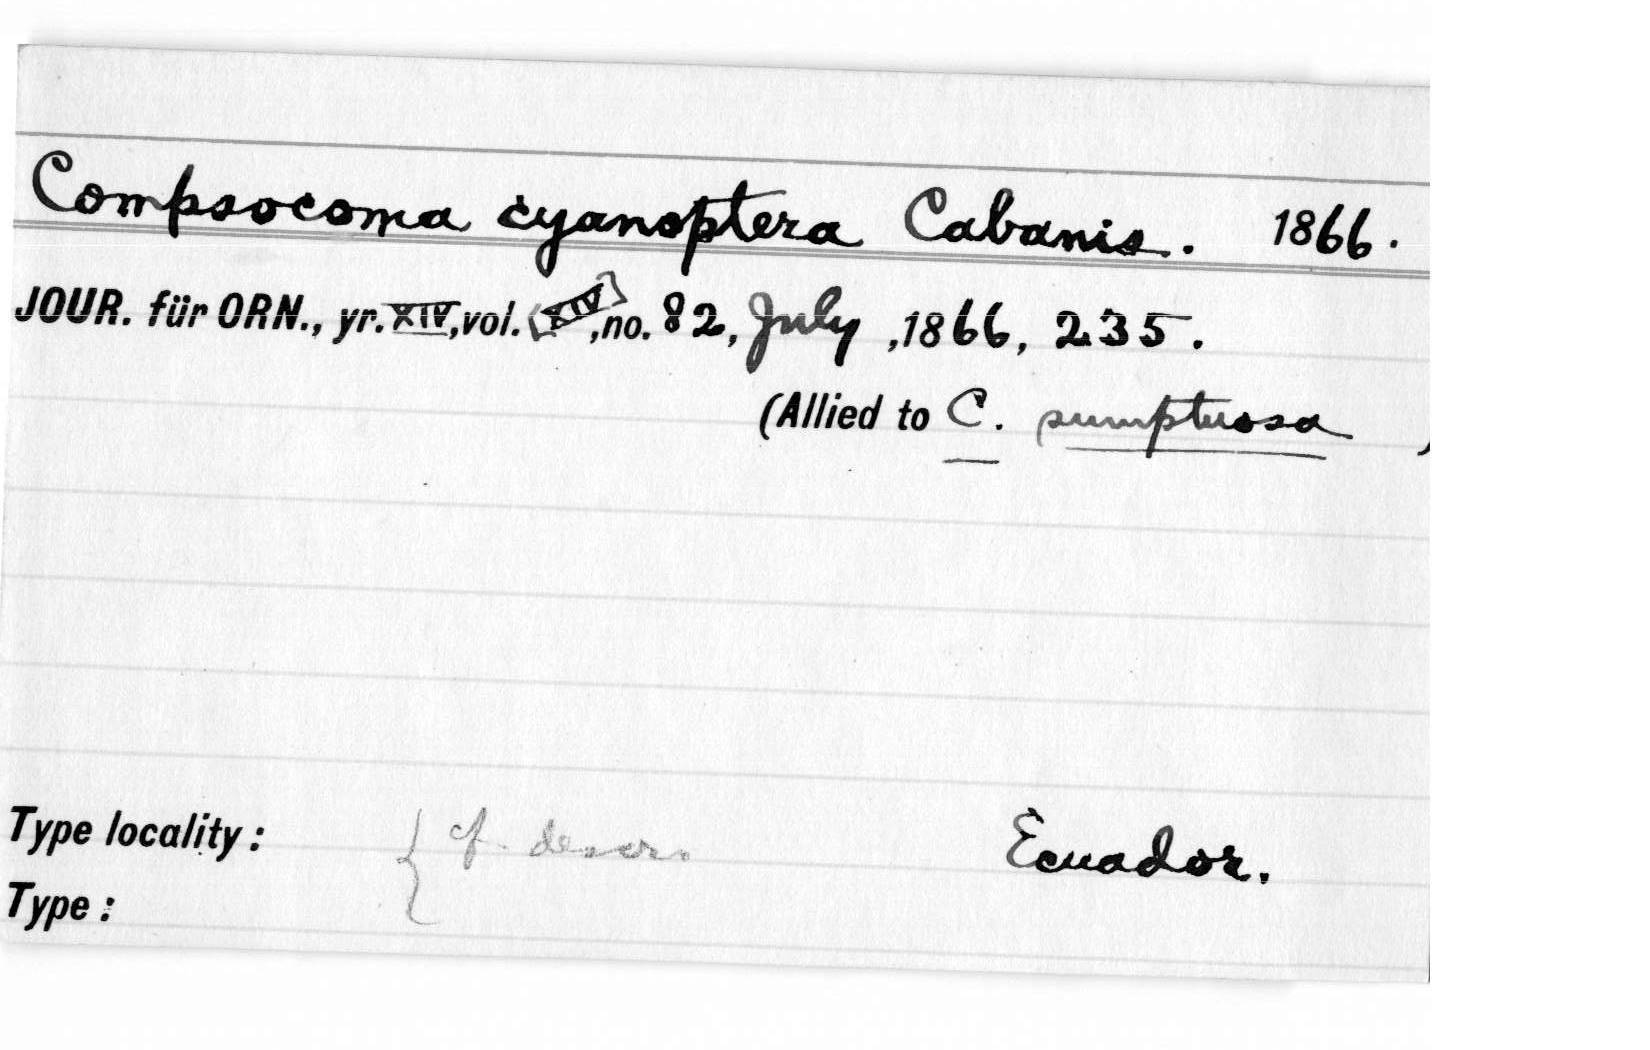 Compsocoma cyanoptera Cabanis. 1866.
JOUR. für ORN., yr. XIV, vol. [XIV], no. 82, July, 1866, 235.
(Allied to C. sumptuosa )
Type locality: { cf. descr. Ecuador.
Type: